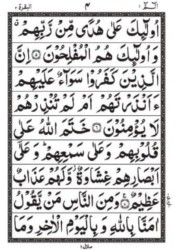 البقرة ٢
٣
الٓمّٓ ١
اُولٰٓئِكَ عَلٰى هُدًى مِّنْ رَّبِّهِمْ ۙ
وَاُولٰٓئِكَ هُمُ الْمُفْلِحُوْنَ ۝ اِنَّ
الَّذِيْنَ كَفَرُوْا سَوَآءٌ عَلَيْهِمْ
ءَاَنْذَرْتَهُمْ اَمْ لَمْ تُنْذِرْهُمْ
لَا يُؤْمِنُوْنَ ۝ خَتَمَ اللّٰهُ عَلٰى
قُلُوْبِهِمْ وَعَلٰى سَمْعِهِمْ ؕ وَعَلٰٓى
اَبْصَارِهِمْ غِشَاوَةٌ ؗ وَّلَهُمْ عَذَابٌ
عَظِيْمٌ ۝ وَمِنَ النَّاسِ مَنْ يَّقُوْلُ
اٰمَنَّا بِاللّٰهِ وَبِالْيَوْمِ الْاٰخِرِ وَمَا
منزل ١